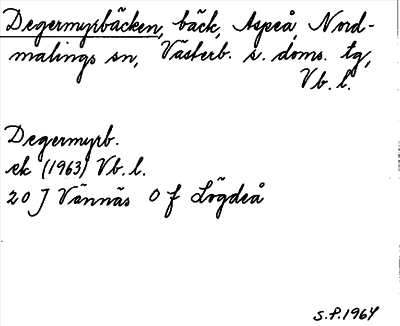 Degermyrbäcken, bäck, Aspeå, Nord-
malings sn, Västerb. s. doms. tg,
Vb. l.
Degermyrb.
ek (1963) Vb. l.
20 J Vännäs 0 f Lögdeå
S.P. 1964